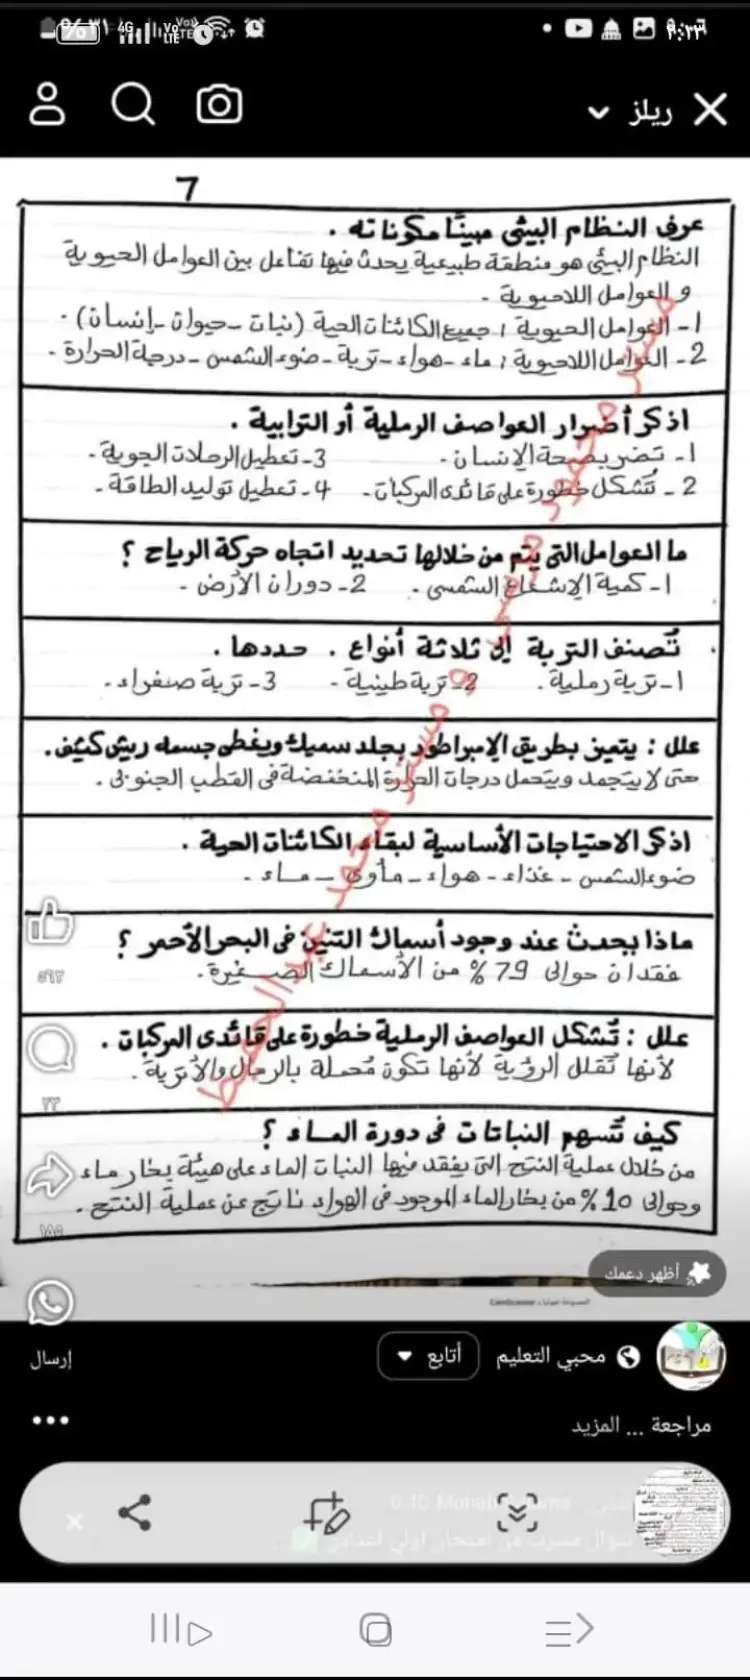 ريلز
7
عرف النظام البيئي مبينًا مكوناته .
النظام البيئي هو منطقة طبيعية يحدث فيها تفاعل بين العوامل الحيوية
و العوامل اللاحيوية .
1- العوامل الحيوية : جميع الكائنات الحية (نبات - حيوان - إنسان) .
2- العوامل اللاحيوية : ماء - هواء - تربة - ضوء الشمس - درجة الحرارة .
اذكر أضرار العواصف الرملية أو الترابية .
1- تضر بصحة الإنسان . 3- تعطيل الرحلات الجوية .
2- تُشكل خطورة على قائدى المركبات . 4- تعطيل توليد الطاقة .
ما العوامل التى يتم من خلالها تحديد اتجاه حركة الرياح ؟
1- كمية الإشعاع الشمسى . 2- دوران الأرض .
تُصنف التربة إلى ثلاثة أنواع . حددها .
1- تربة رملية . 2- تربة طينية . 3- تربة صفراء .
علل : يتميز بطريق الإمبراطور بجلد سميك ويغطى جسمه ريش كثيف .
حتى لا يتجمد ويتحمل درجات الحرارة المنخفضة فى القطب الجنوبى .
اذكر الاحتياجات الأساسية لبقاء الكائنات الحية .
ضوء الشمس - غذاء - هواء - مأوى - ماء .
ماذا يحدث عند وجود أسماك التنين فى البحر الأحمر ؟
فقدان حوالى 79% من الأسماك الصغيرة .
علل : تُشكل العواصف الرملية خطورة على قائدى المركبات .
لأنها تُقلل الرؤية لأنها تكون مُحملة بالرمال والأتربة .
كيف تُسهم النباتات فى دورة الماء ؟
من خلال عملية النتح التى يفقد فيها النبات الماء على هيئة بخار ماء
وحوالى 10% من بخار الماء الموجود فى الهواء ناتج عن عملية النتح .
مستر محمود مرسى و مستر محمد عبدالحفيظ
٥٩٢
٢٣
١٨٥
أظهر دعمك
CamScanner
محبي التعليم
أتابع
إرسال
مراجعة ... المزيد